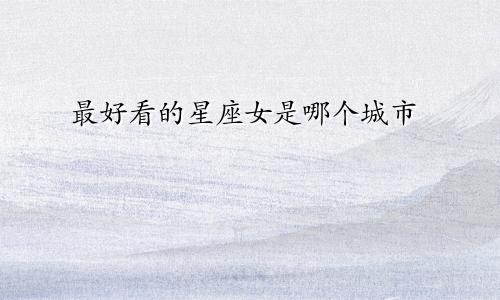 最好看的星座女是哪个城市